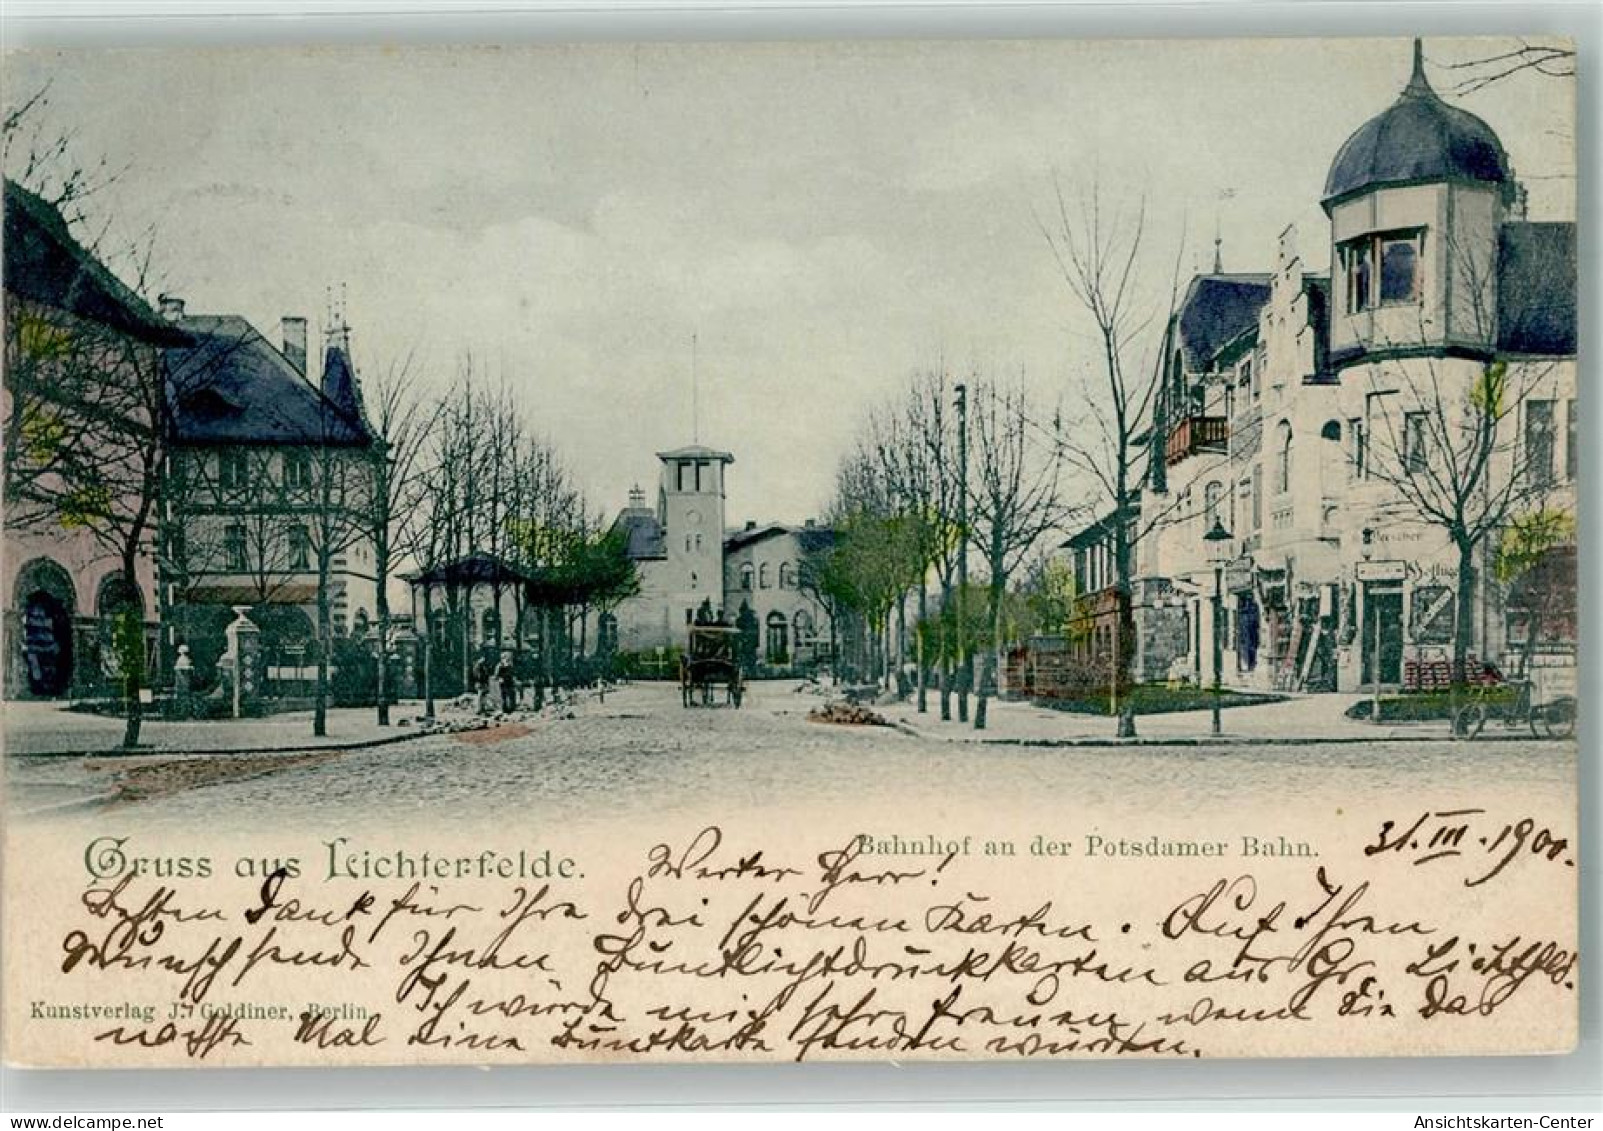 Fleischer
Gruss aus Lichterfelde.
Bahnhof an der Potsdamer Bahn.
31. III. 1900.
Werter Herr!
Besten Dank für Ihre drei schönen Karten. Auf Ihren
Wunsch sende Ihnen Buntlichtdruckkarten aus Gr. Lichtfeld.
Kunstverlag J. Goldiner, Berlin.
Ich würde mich sehr freuen, wenn Sie das
nächste Mal eine Buntkarte senden würden.
delcampe.net
Ansichtskarten-Center